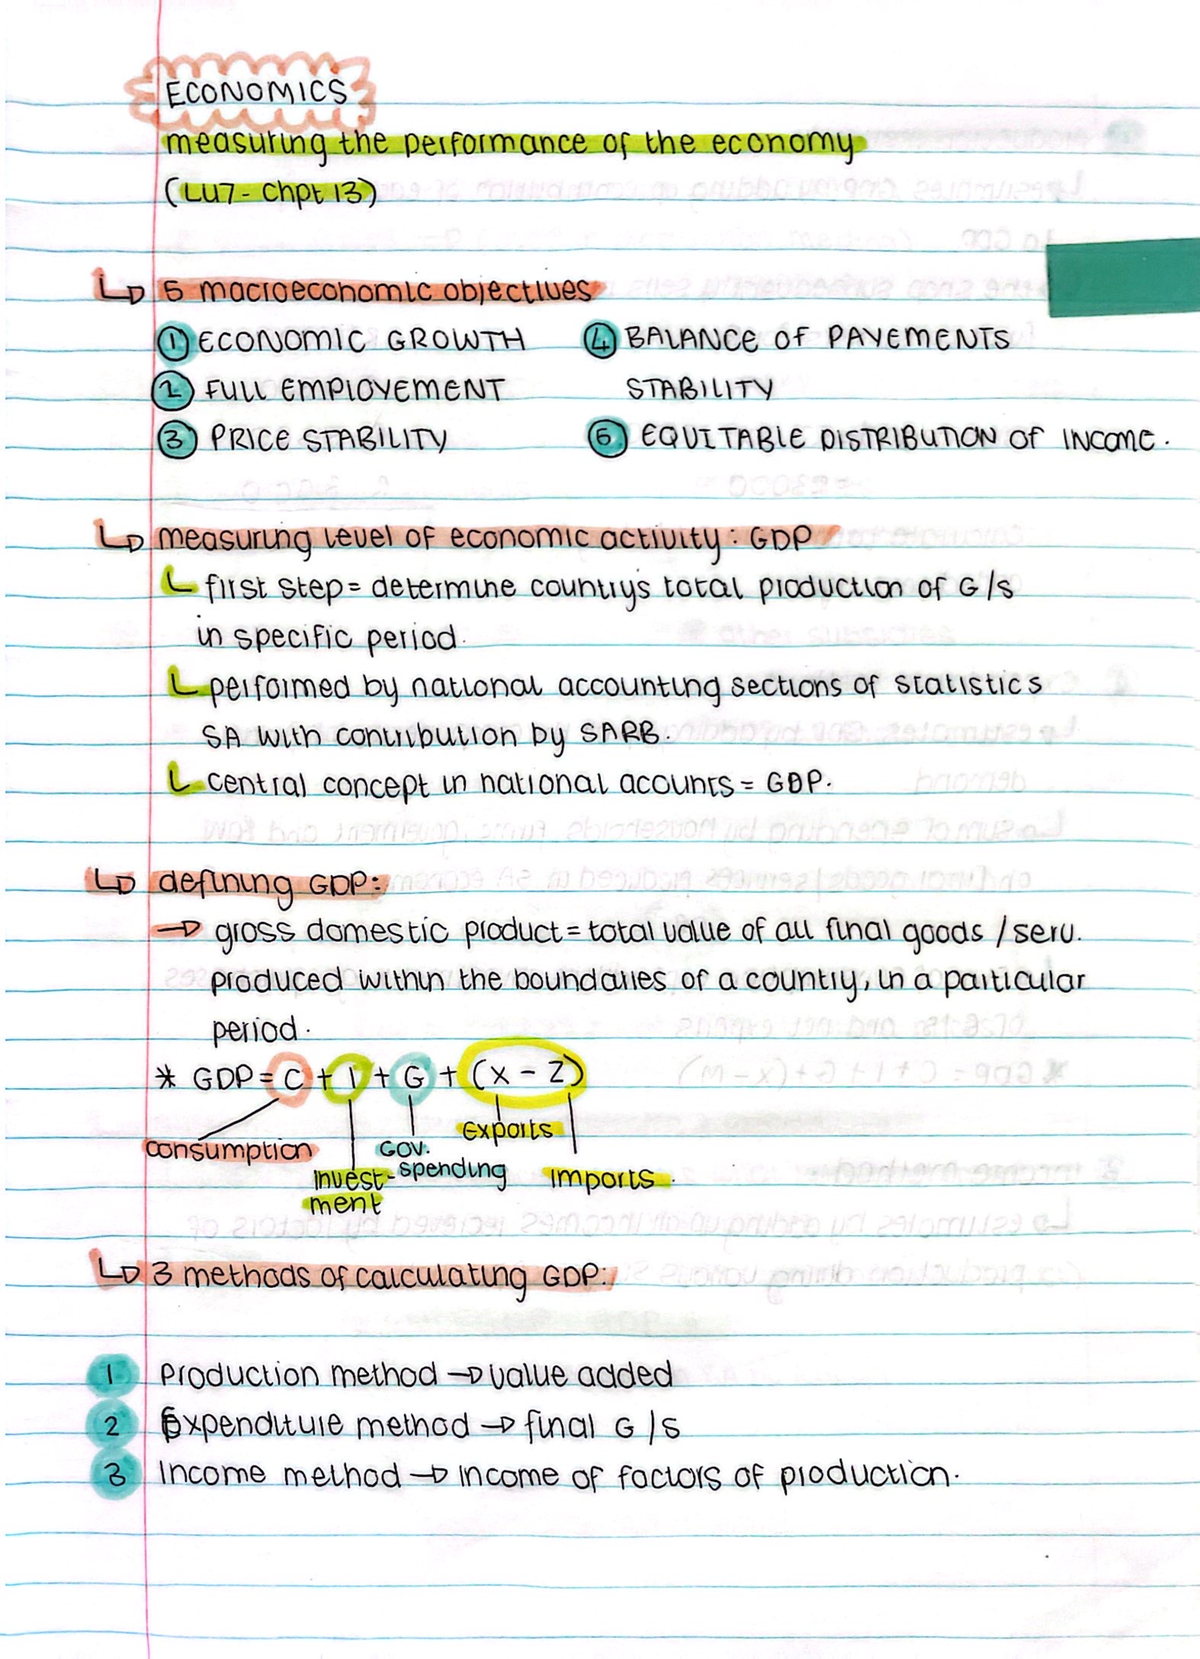 ECONOMICS
measuring the performance of the economy
(LU7 - Chpt 13)
5 macroeconomic objectives
1 ECONOMIC GROWTH
2 FULL EMPLOYEMENT
3 PRICE STABILITY
4 BALANCE OF PAYEMENTS
STABILITY
5 EQUITABLE DISTRIBUTION OF INCOME.
measuring level of economic activity : GDP
first step = determine country's total production of G/s
in specific period.
performed by national accounting sections of statistics
SA with contribution by SARB.
central concept in national acounts = GDP.
defining GDP:
gross domestic product = total value of all final goods / serv.
produced within the boundaries of a country, in a particular
period.
* GDP = C + I + G + (X - Z)
consumption
invest-
ment
Gov.
spending
Exports
Imports.
3 methods of calculating GDP:
1 Production method → value added
2 Expenditure method → final G/s
3 Income method → income of factors of production.